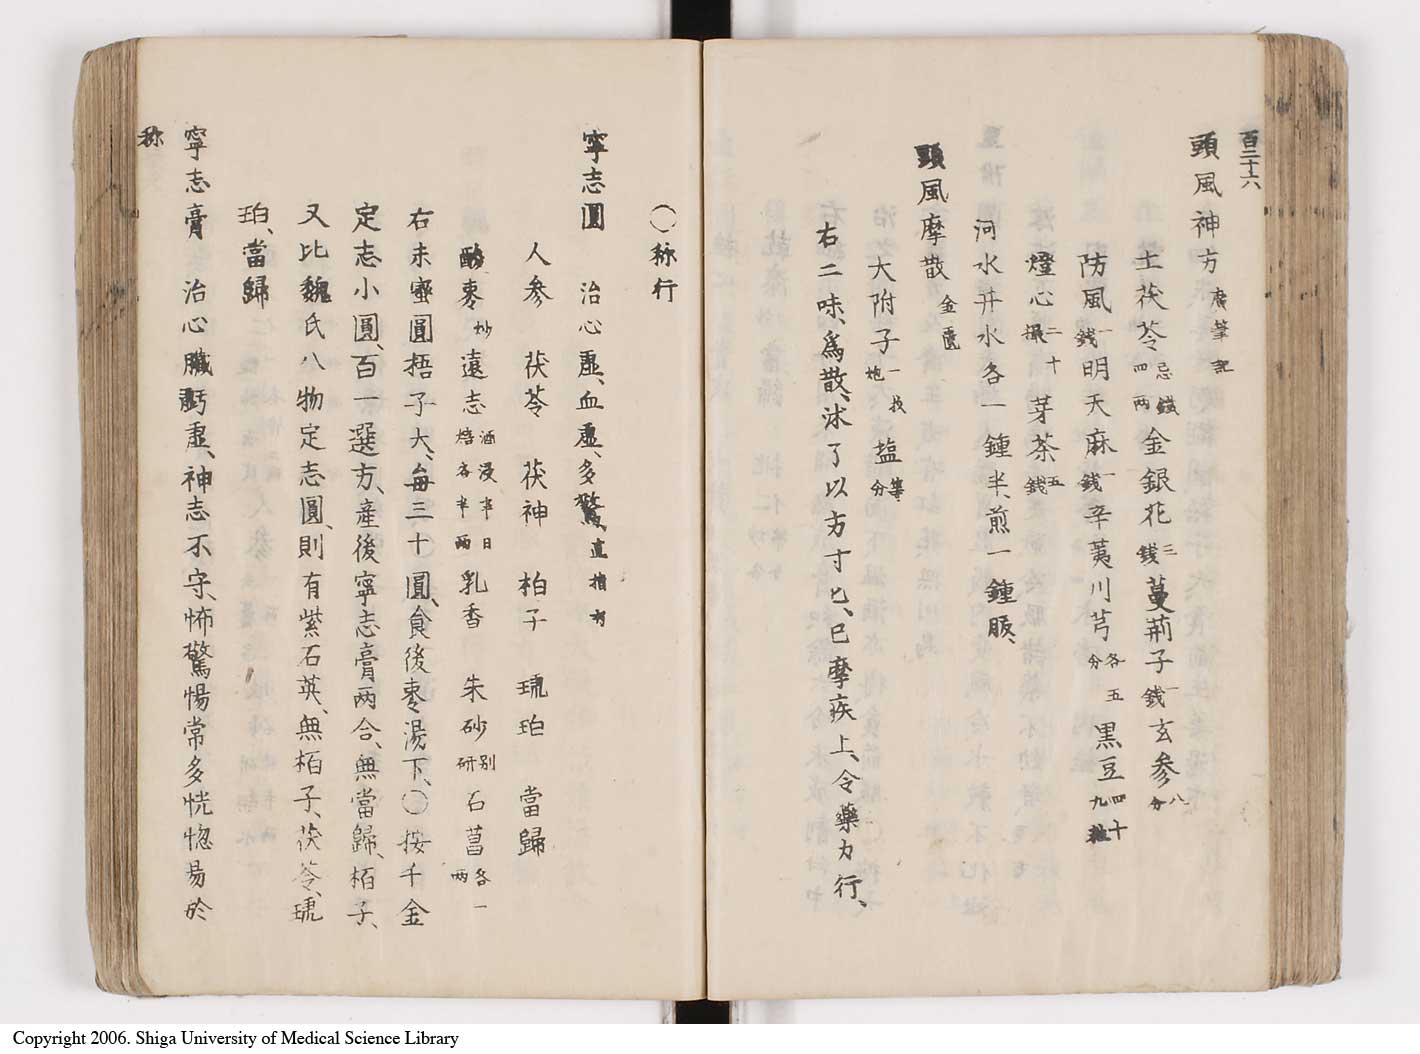 百三十六
頭風神方 廣筆記
土茯苓 忌鐵四兩 金銀花 三錢 蔓荊子 一錢 玄参 八分
防風 一錢 明天麻 一錢 辛荑川芎 各五分 黒豆 四十九粒
燈心 二十撮 芽茶 五錢
河水井水各一鍾半、煎一鍾服、
頭風摩散 金匱
大附子 一枚炮 塩 等分
右二味、爲散、沐了以方寸匕、已摩疾上、令藥力行、
〇称行
寧志圓 治心虚、血虚、多驚、直指方
人参 茯苓 茯神 柏子 琥珀 當歸
酸棗 炒 遠志 酒浸半日焙各半両 乳香 朱砂 別研 石菖 各一両
右末蜜圓梧子大、毎三十圓、食後棗湯下、〇按千金
定志小圓、百一選方、産後寧志膏両合、無當歸、栢子、
又比魏氏八物定志圓、則有紫石英、無栢子、茯苓、琥
珀、當歸
寧志膏 治心臓虧虚、神志不守、怖驚惕常多恍惚易於
称
Copyright 2006. Shiga University of Medical Science Library